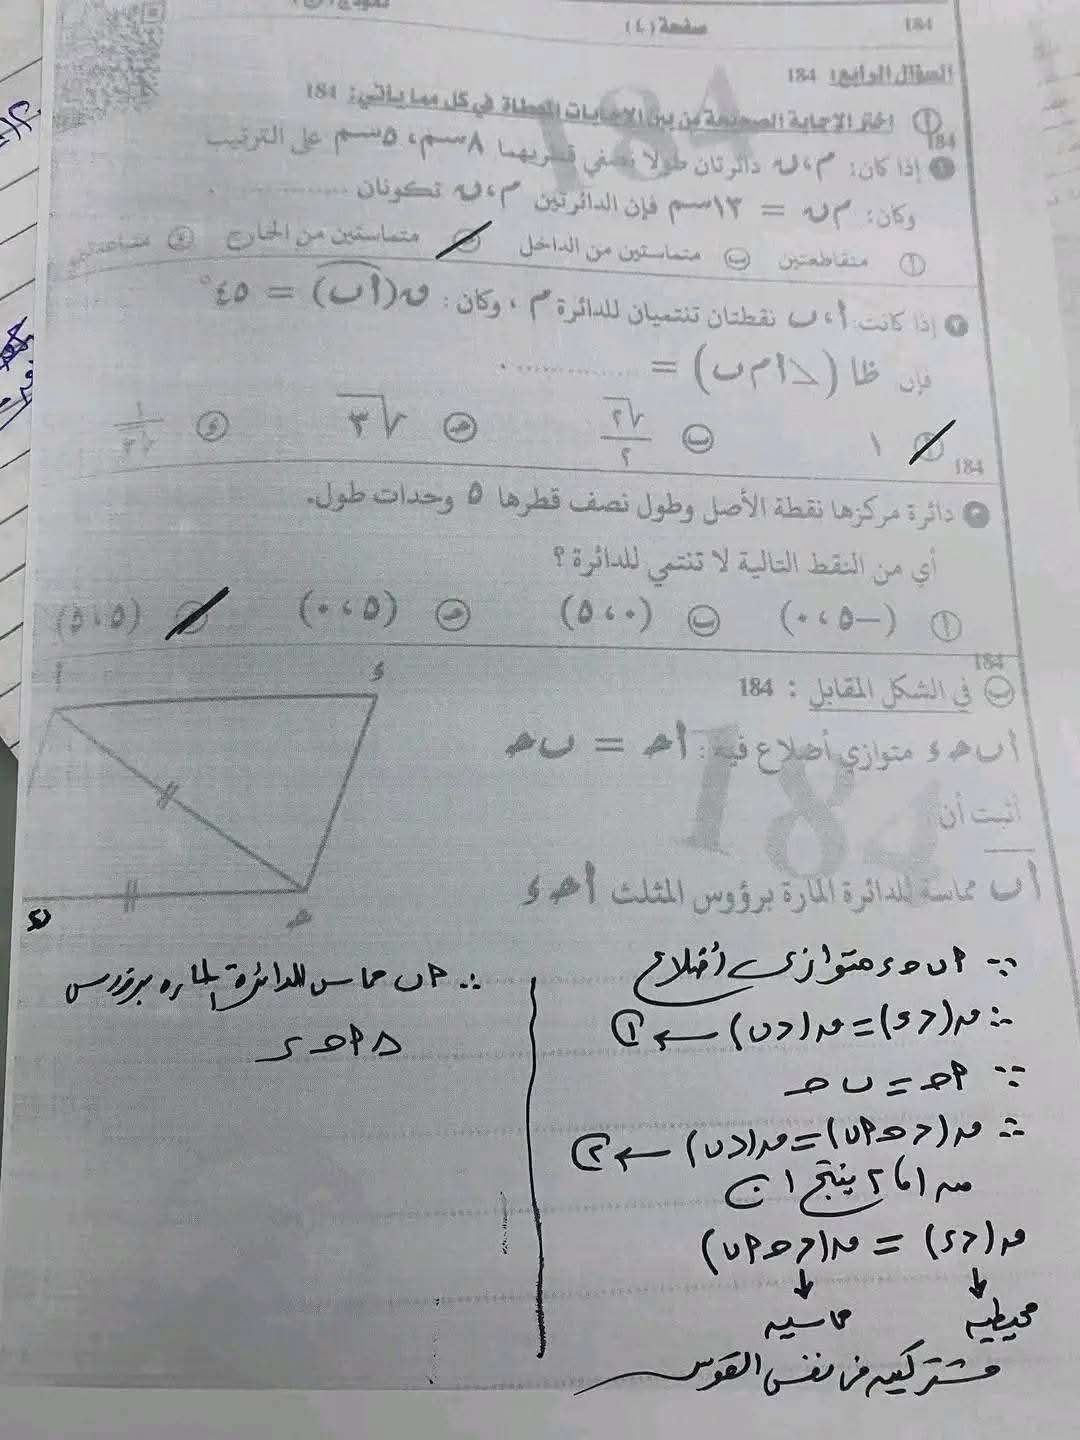 184 صفحة (٤)
السؤال الرابع: 184
أ اختر الإجابة الصحيحة من بين الإجابات المعطاة في كل مما يأتي: 184
184
١ إذا كان: م، ن دائرتان طولا نصفي قطريهما ٨ سم، ٥ سم على الترتيب
وكان: م ن = ١٣ سم فإن الدائرتين م، ن تكونان ..........
أ متقاطعتين ب متماستين من الداخل متماستين من الخارج د متباعدتين
٢ إذا كانت: أ، ب نقطتان تنتميان للدائرة م، وكان: ق(أب) = ٤٥°
فإن ظا (∠أ م ب) = ..........
أ ١ ب √٢/٢ جـ √٣ د ١/√٣
184
٣ دائرة مركزها نقطة الأصل وطول نصف قطرها ٥ وحدات طول.
أي من النقط التالية لا تنتمي للدائرة ؟
أ (-٥، ٠) ب (٠، ٥) جـ (٥، ٠) (٥، ٥)
184
ب في الشكل المقابل : 184
أ ء
أ ب جـ ء متوازي أضلاع فيه: أ جـ = ب جـ
أثبت أن
أ ب مماسة للدائرة المارة برؤوس المثلث أ جـ ء
جـ ب
∵ أ ب جـ ء متوازى أضلاع
∴ ق(∠ء) = ق(∠ب) ← ①
∵ أ جـ = ب جـ
∴ ق(∠جـ أ ب) = ق(∠ب) ← ②
من ١ ، ٢ ينتج ان
ق(∠ء) = ق(∠جـ أ ب)
↓ ↓
محيطيه مماسيه
مشتركتين في نفس القوس
∴ أ ب مماس للدائرة الماره برؤوس
△ أ جـ ء